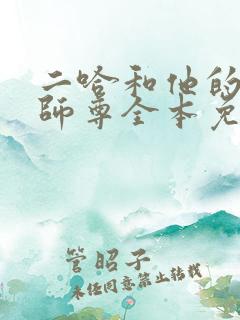 二哈和他的
師尊全本免
管昭子
未经同意禁止转载